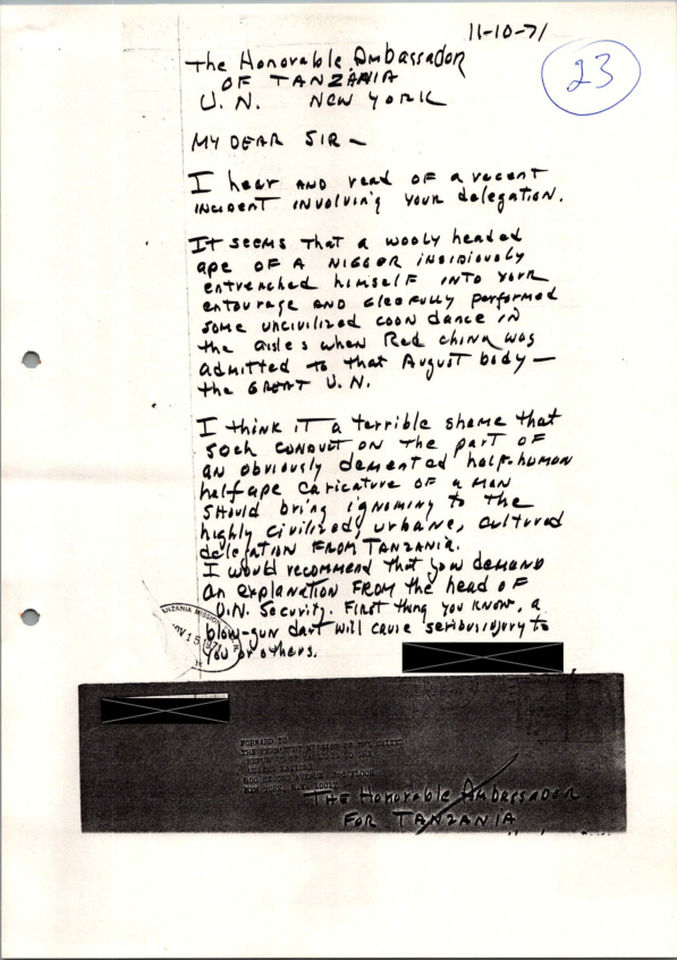 11-10-71
23
The Honorable Ambassador
OF TANZANIA
U.N. NEW YORK
MY DEAR SIR —
I hear AND read OF a recent
INCIDENT INVOLVING YOUR delegation.
IT SEEMS THAT a wooly headed
ape OF A NIGGOR INSIDIOUSLY
entrenched himself INTO YOUR
entourage AND gleefully performed
some uncivilized coon dance IN
the aisles when Red china was
admitted to that August body —
the GREAT U.N.
I think IT a terrible shame that
such CONDUCT ON the part OF
AN obviously demented half-human
half ape caricature OF a MAN
should bring ignominy to the
highly civilized, urbane, cultured
delegation FROM TANZANIA.
I would recommend that you demand
an explanation FROM the head OF
U.N. Security. First thing you know, a
blow-gun dart will cause serious injury to
you or others.
TANZANIA MISSION
NOV 15 1971
FORWARD TO
THE PERMANENT MISSION OF THE UNITED
REPUBLIC OF TANZANIA TO THE
UNITED NATIONS
800 SECOND AVENUE 3rd FLOOR
NEW YORK, N.Y. 10017
THE Honorable Ambassador
FOR TANZANIA